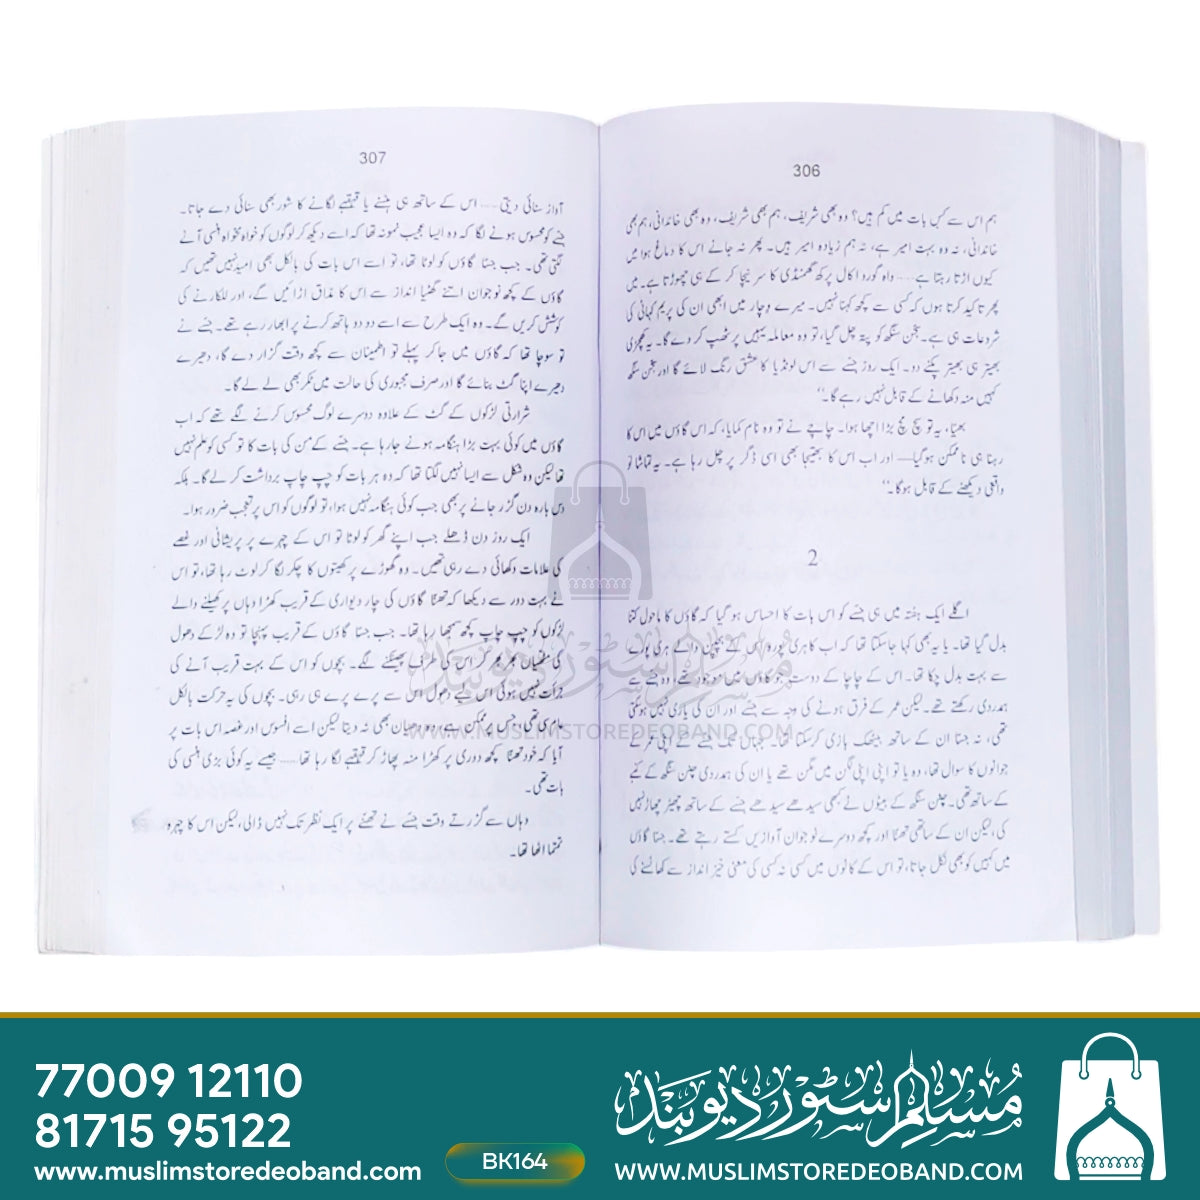 306
ہم اس سے کس بات میں کم ہیں؟ وہ بھی شریف، ہم بھی شریف، وہ بھی خاندانی، ہم بھی
خاندانی، نہ وہ بہت امیر ہے، نہ ہم زیادہ امیر ہیں۔ پھر نہ جانے اس کا دماغ ہوا میں
کیوں اڑتا رہتا ہے..... واہ گورو اکال پرکھ گھمنڈی کا سر نیچا کر کے ہی چھوڑتا ہے۔ میں
پھر تاکید کرتا ہوں کہ کسی سے کچھ کہنا نہیں۔ میرے وچار میں ابھی ان کی پریم کہانی کی
شروعات ہی ہے۔ بجن سنگھ کو پتہ چل گیا، تو وہ معاملہ یہیں پر ٹھپ کر دے گا۔ یہ کھچڑی
بھیتر ہی بھیتر پکنے دو۔ ایک روز جسے سے اس لونڈیا کا عشق رنگ لائے گا اور بجن سنگھ
کہیں منہ دکھانے کے قابل نہیں رہے گا۔‘‘
بھیّا، یہ تو سچ مچ بڑا اچھا ہوا۔ چاچے نے تو وہ نام کمایا، کہ اس گاؤں میں اس کا
رہنا ہی ناممکن ہوگیا— اور اب اس کا بھتیجا بھی اسی ڈگر پر چل رہا ہے۔ یہ تماشا تو
واقعی دیکھنے کے قابل ہوگا۔‘‘
2
اگلے ایک ہفتہ میں ہی جسے کو اس بات کا احساس ہو گیا کہ گاؤں کا ماحول کتنا
بدل گیا تھا۔ یا یہ بھی کہا جاسکتا تھا کہ اب کا ہری پورہ اس کے بچپن والے ہری پورے
سے بہت بدل چکا تھا۔ اس کے چاچا کے دوست جو گاؤں میں موجود تھے، وہ جسے سے
ہمدردی رکھتے تھے۔ لیکن عمر کے فرق ہونے کی وجہ سے جسے اور ان کی یاری نہیں ہوسکتی
تھی، نہ جسا ان کے ساتھ بیٹھک بازی کرسکتا تھا۔ جہاں تک جسے کے اپنی عمر کے
جوانوں کا سوال تھا، وہ یا تو اپنی اپنی لگن میں مگن تھے یا ان کی ہمدردی چنن سنگھ کے کنبے
کے ساتھ تھی۔ چنن سنگھ کے بیٹوں نے کبھی سیدھے سیدھے جسے کے ساتھ چھیڑ چھاڑ نہیں
کی، لیکن ان کے ساتھی تھمنا اور کچھ دوسرے نوجوان آوازیں کستے رہتے تھے۔ جسا گاؤں
میں کہیں کو بھی نکل جاتا، تو اس کے کانوں میں کسی نہ کسی کی معنی خیز انداز سے کھانسنے کی
307
آواز سنائی دیتی..... اس کے ساتھ ہی ہنسنے یا قہقہے لگانے کا شور بھی سنائی دے جاتا۔
جسے کو محسوس ہونے لگا کہ وہ ایسا عجیب نمونہ تھا کہ اسے دیکھ کر لوگوں کو خواہ مخواہ ہنسی آنے
لگتی تھی۔ جب جسا گاؤں کو لوٹا تھا، تو اسے اس بات کی بالکل بھی امید نہیں تھی کہ
گاؤں کے کچھ نوجوان اتنے گھٹیا انداز سے اس کا مذاق اڑائیں گے، اور للکارنے کی
کوشش کریں گے۔ وہ ایک طرح سے اسے دو دو ہاتھ کرنے پر ابھار رہے تھے۔ جسے نے
تو سوچا تھا کہ گاؤں میں جاکر پہلے تو اطمینان سے کچھ وقت گزار دے گا، دھیرے
دھیرے اپنا گٹ بنائے گا اور صرف مجبوری کی حالت میں ٹکر بھی لے لے گا۔
شرارتی لڑکوں کے گٹ کے علاوہ دوسرے لوگ محسوس کرنے لگے تھے کہ اب
گاؤں میں کوئی بہت بڑا ہنگامہ ہونے جارہا ہے۔ جسے کے من کی بات کا تو کسی کو علم نہیں
تھا لیکن وہ شکل سے ایسا نہیں لگتا تھا کہ وہ ہر بات کو چپ چاپ برداشت کرلے گا۔ بلکہ
دس بارہ دن گزر جانے پر بھی جب کوئی ہنگامہ نہیں ہوا، تو لوگوں کو اس پر تعجب ضرور ہوا۔
ایک روز دن ڈھلے جب اپنے گھر کو لوٹا تو اس کے چہرے پر پریشانی اور غصے
کی علامات دکھائی دے رہی تھیں۔ وہ گھوڑے پر کھیتوں کا چکر لگا کر لوٹ رہا تھا، تو اس
نے بہت دور سے دیکھا کہ تھمنا گاؤں کی چار دیواری کے قریب کھڑا وہاں پر کھیلنے والے
لڑکوں کو چپ چاپ کچھ سمجھا رہا تھا۔ جب جسا گاؤں کے قریب پہنچا تو وہ لڑکے دھول
کی مٹھیاں بھر بھر کر اس کی طرف پھینکنے لگے۔ بچوں کو اس کے بہت قریب آنے کی
جرأت نہیں ہوئی اس لیے دھول اس سے پرے پرے ہی رہی۔ بچوں کی یہ حرکت بالکل
عام سی تھی، جس پر ممکن ہے، وہ دھیان بھی نہ دیتا لیکن اسے افسوس اور غصہ اس بات پر
آیا کہ خود تھمنا کچھ دوری پر کھڑا منہ پھاڑ کر قہقہے لگا رہا تھا..... جیسے یہ کوئی بڑی ہنسی کی
بات تھی۔
وہاں سے گزرتے وقت جسے نے تھمنے پر ایک نظر تک نہیں ڈالی، لیکن اس کا چہرہ
تمتما اٹھا تھا۔
مسلم سٹور دیوبند
WWW.MUSLIMSTOREDEOBAND.COM
77009 12110
81715 95122
www.muslimstoredeoband.com
BK164
مسلم سٹور دیوبند
WWW.MUSLIMSTOREDEOBAND.COM